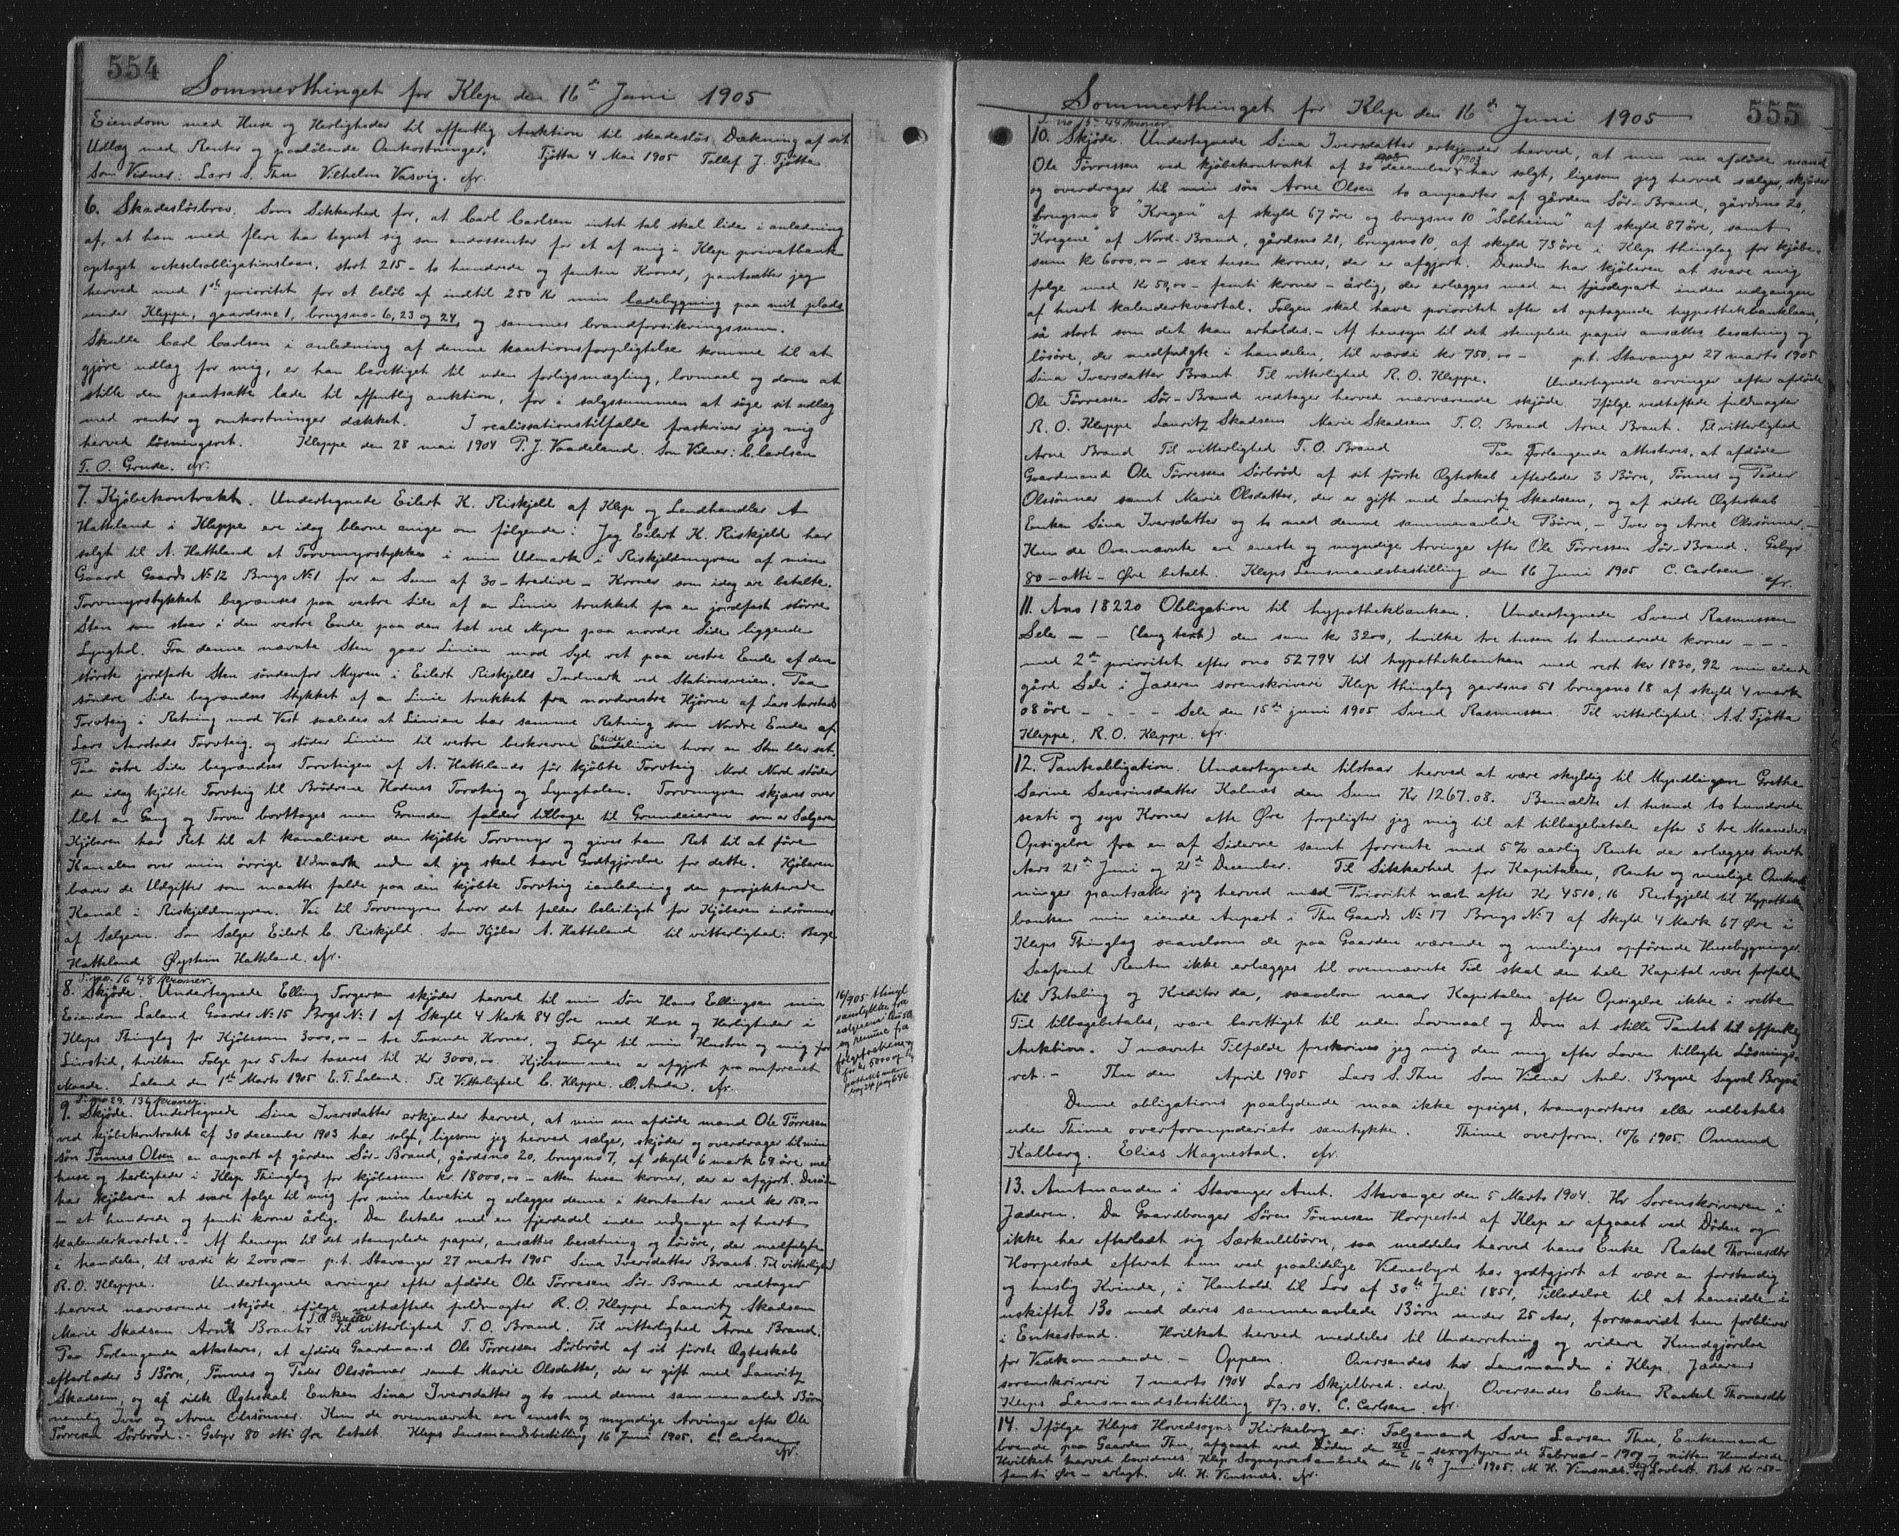 554
Sommerthinget for Klep den 16de Juni 1905
Eiendom med Huse og Herligheder til offentlig Auktion til skadesløs Dækning af sit
Udlæg med Renter og paaløbende Omkostninger. Tjøtta 4 Mai 1905 Tollef J. Tjøtta
Som Vidner: Lars S. Thu Vilhelm Vasvig. efr.
6. Skadesløsbrev. Som Sikkerhed for, at Carl Carlsen intet tab skal lide i anledning
af, at han med flere har tegnet sig som endossenter for et af mig i Klep privatbank
optaget vekselobligationslaan, stort 215 - to hundrede og femten Kroner, pantsætter jeg
herved med 1ste prioritet for et beløb af indtil 250 Kr min ladebygning paa mit plads
under Kleppe, gaardsno 1, brugsno - 6, 23 og 24, og sammes brandforsikringssum.
Skulde Carl Carlsen i anledning af denne kautionsforpligtelse komme til at
gjøre udlæg for mig, er han berettiget til uden forligsmægling, lovmaal og dom at
stille den pantsatte lade til offentlig auktion, for i salgssummen at søge sit udlæg
med renter og omkostninger dækket. I realisationstilfælde fraskriver jeg mig
herved løsningsret. Kleppe den 28 mai 1904 P. J. Vaadeland. Som Vidner: C. Carlsen
T. O. Grude. efr.
7. Kjøbekontrakt. Undertegnede Eilert K. Riskjeld af Klep og Lendhandler A
Hatteland i Kleppe ere idag blevne enige om følgende: Jeg Eilert K. Riskjeld har
solgt til A. Hatteland et Torvmyrstykke i min Udmark i Riskjeldmyren af min
Gaard Gaards No 12 Brugs No 1 for en Sum af 30 - tredive - Kroner som idag ere betalte.
Torvmyrstykket begrænses paa vestre side af en Linie trukket fra en jordfast større
Sten som staar i den vestre Ende paa den tæt ved Myren paa nordre Side liggende
Lynghol. Fra denne nævnte Sten gaar Linien mod Syd ret paa vestre Ende af den
største jordfaste Sten søndenfor Myren i Eilert Riskjelds Indmark ved Stationsveien. Paa
søndre Side begrændses Stykket af en Linie trukket fra nordvestre Hjørne af Lars Aarstad
Torvteig i Retning mod Vest saaledes at Linien har samme Retning som Nordre Ende af
Lars Aarstads Torvteig og støder Linien til vestre beskrevne Sidelinie hvor en Sten blev sat.
Paa østre Side begrændses Torvteigen af A. Hattelands før kjøbte Torvteig. Mod Nord støder
den idag kjøbte Torvteig til Brødrene Hodnes Torvteig og Lyngholen. Torvmyren skjæres over
blot en Gang og Torven borttages men Grunden falder tilbage til Grundeieren som er Sælgeren
Kjøberen har Ret til at kanalisere den kjøbte Torvmyr og gives ham Ret til at føre
Kanalen over min øvrige Udmark uden at jeg skal have Godtgjørelse for dette. Kjøberen
bærer de Udgifter som maatte falde paa den kjøbte Torvteig i anledning den projekterede
Kanal i Riskjeldmyren. Vei til Torvmyren hvor det falder beleiligt for Kjøberen indrømmes
af Sælgeren. Som Sælger Eilert C. Riskjeld. Som Kjøber A. Hatteland til vitterlighed: Berge
Hatteland Øystein Hatteland. efr.
S. no. 16 48 kroner.
8. Skjøde. Undertegnede Elling Torgersen skjøder herved til min Søn Hans Ellingsen min
Eiendom Laland Gaards No 15 Brgs No 1 af Skyld 4 Mark 84 Øre med Huse og Herligheder i
Kleps Thinglag for Kjøbesum 3000,00 - tre Tusende Kroner, og Folge til min Hustru og mig for
Livstid, hvilken Folge pr 5 Aar taseres til Kr 3000,00. Kjøbesummen er afgjort paa omforenet
Maade. Laland den 1ste Marts 1905 E. T. Laland. Til Vitterlighed C. Kleppe. O. Anda. efr.
S. no 29. 136 kroner.
9. Skjøde. Undertegnede Sina Iversdatter erkjender herved, at min nu afdøde mand Ole Tørresen
ved kjøbekontrakt af 30 december 1903 har solgt, ligesom jeg herved sælger, skjøder og overdrager til min
søn Tønnes Olsen en anpart af gården Sør-Braud, gårdsno 20, brugsno 7, af skyld 6 mark 69 øre, med
huse og herligheder i Klep Thinglag for kjøbesum kr. 18000,00 - atten tusen kroner, der er afgjort. Desuden
har kjøberen at svare folge til mig for min levetid og erlægges denne i kontanter med kr 150,00
- et hundrede og femti kroner årlig. Den betales med en fjerdedel inden udgangen af hvert
kalenderkvartal. - Af hensyn til det stemplede papir, ansættes besætning og løsøre, der medfulgte
i handelen, til værdi kr 2000,00 p. t. Stavanger 27 marts 1905 Sina Iversdatter Braut. Til vitterlighed
R. O. Kleppe. Undertegnede arvinger efter afdøde Ole Tørresen Sør-Braud vedtager
herved nærværende skjøde. ifølge vedhæftede fuldmagter R. O. Kleppe Lauritz Skadsem
Marie Skadsem Arne Braut Til vitterlighed T. O. Braud. Til vitterlighed Arne Braud.
Paa Forlangende attesteres, at afdøde Gaardmand Ole Tørresen Sørbrød af sit første Ægteskab
efterlader 3 Børn, Tønnes og Peder Olssønner samt Marie Olsdatter, der er gift med Lauritz
Skadsem, og af sidste Ægteskab Enken Sina Iversdatter og to med denne sammenavlede Børn
nemlig Iver og Arne Olssønner. Kun de ovennævnte ere eneste og myndige Arvinger efter Ole
Tørresen Sørbrød. - Gebyr 80 otti Øre betalt. Kleps Lensmandsbestilling 16 Juni 1905. C. Carlsen
efr.
555
Sommerthinget for Klep den 16de Juni 1905
S. no 15 - 44 kroner
10. Skjøde. Undertegnede Sina Iversdatter erkjender herved, at min nu afdøde mand
Ole Tørressen ved kjøbekontrakt af 30 december 1903 har solgt, ligesom jeg herved sælger, skjøder
og overdrager til min søn Arne Olsen to anparter af gården Sør-Braud, gårdsno 20,
brugsno 8 "Kregen" af skyld 67 øre og brugsno 10 "Solheim" af skyld 87 øre, samt
"Kregene" af Nord-Braud, gårdsno 21, brugsno 10, af skyld 73 øre i Klep thinglag for kjøbe-
sum kr 6000,00 - sex tusen kroner, der er afgjort. Desuden har kjøberen at svare mig
folge med Kr 50,00 - femti kroner - årlig, der erlægges med en fjerdepart inden udgangen
af hvert kalenderkvartal. Folgen skal have prioritet efter et optagende hypothekbanklaan,
så stort som det kan erholdes. - Af hensyn til det stemplede papir ansættes besætning og
løsøre, der medfulgte i handelen, til værdi kr 750,00 - p. t. Stavanger 27 marts 1905
Sina Iversdatter Braut Til vitterlighed R. O. Kleppe. Undertegnede arvinger efter afdøde
Ole Tørressen Sør-Braud vedtager herved nærværende skjøde. Ifølge vedheftede fuldmagter
R. O. Kleppe Lauritz Skadsem Marie Skadsem T. O. Braud Arne Braut. Til vitterlighed
Arne Braud Til vitterlighed T. O. Braud Paa Forlangende attesteres, at afdøde
Gaardmand Ole Tørressen Sørbrød af sit første Ægteskab efterlader 3 Børn, Tønnes og Peder
Olssønner samt Marie Olsdatter, der er gift med Lauritz Skadsem, og af sidste Ægteskab
Enken Sina Iversdatter og to med denne sammenavlede Børn, - Iver og Arne Olssønner. -
Kun de Ovennævnte ere eneste og myndige Arvinger efter Ole Tørressen Sør-Braud. Gebyr
80 - otti - Øre betalt. Kleps Lensmandsbestilling den 16 Juni 1905 C. Carlsen
efr.
11. Ano 18220 Obligation til hypothekbanken. Undertegnede Svend Rasmussen
Sele - - (lang text) den sum kr 3200, hvilke tre tusen to hundrede kroner - - -
med 2den prioritet efter ono 52794 til hypothekbanken med rest kr 1830,92 min eiende
gård Sele i Jæderen sorenskriveri Klep thinglag gardsno 51 brugsno 18 af skyld 4 mark
08 øre - - - - Sele den 15de juni 1905 Svend Rasmussen Til vitterlighed: A. S. Tjøtta
Kleppe, R. O. Kleppe. efr.
12. Pantobligation. Undertegnede tilstaar herved at være skyldig til Myndlingen Grethe
Serine Severinsdatter Kalnæs den Sum Kr 1267.08. Bemældte et tusend to hundrede
sexti og syv Kroner otte Øre forpligter jeg mig til at tilbagebetale efter 3 tre Maaneders
Opsigelse fra en af Siderne samt forrente med 5 % aarlig Rente der erlægges hvert
Aars 21de Juni og 21de December. Til Sikkerhed for Kapitalen, Renter og mulige Omkost-
ninger pantsætter jeg herved med Prioritet næst efter Kr 4510,16 Restgjeld til Hypothek-
banken min eiende Anpart i Thu Gaards No 17 Brugs No 7 af Skyld 4 Mark 67 Øre i
Kleps Thinglag saavelsom de paa Gaarden værende og muligens opførende Husebygninger.
Saafremt Renten ikke erlægges til ovennævnte Tid skal den hele Kapital være forfalden
til Betaling og Kreditor da, saavelsom naar Kapitalen efter Opsigelse ikke i rette
Tid tilbagebetales, være berettiget til uden Lovmaal og Dom at stille Pantet til offentlig
Auktion. I nævnte Tilfælde fraskrives jeg mig den mig efter Loven tillagte Løsnings-
ret. - Thu den April 1905 Lars S. Thu Som Vidner Andr. Bryne Sigval Bryne
Denne obligations paalydende maa ikke opsiges, transporteres eller udbetales
uden Thime overformynderiets samtykke. Thime overform. 10/6 1905. Omund
Kalberg. Elias Magnestad. efr.
13. Amtmanden i Stavanger Amt. Stavanger den 5 Marts 1904. Hr Sorenskriveren i
Jæderen. Da Gaardbruger Søren Tønnesen Horpestad af Klep er afgaaet ved Døden og
ikke har efterladt sig Særkuldbørn, saa meddeles herved hans Enke Rakel Thomasdtr
Horpestad efterat hun ved paalidelige Vidnesbyrd har godtgjort at være en forstandig
og huslig Kvinde, i Henhold til Lov af 30te Juli 1851, Tilladelse til at hensidde i
uskiftet Bo med deres sammenavlede Børn under 25 Aar, forsaavidt hun forbliver
i Enkestand. Hvilket herved meddeles til Underretning og videre Kundgjørelse
for Vedkommende. - Oppen. Oversendes hr Lensmanden i Klep. Jæderens
sorenskriveri 7 marts 1904 Lars Skjelbred. edsv. Oversendes Enken Raakel Thomasdtr
Kleps Lensmandsbestilling 8/3. 04. C. Carlsen. efr.
14. Ifølge Kleps Hovedsogns Kirkebog er: Folgemand Sven Larsen Thu, Enkemand
boende paa Gaarden Thu, afgaaet ved Døden den 26/2 - sexogtyvende Februar - 1900 - nitten Hundrede
Hvilket herved bevidnes. Klep Sogneprestembede den 16de Juni 1905. M. H. Vinsnes. Bet Kr -50-
femti Øre - erlagt. M. H. Vinsnes. efr.